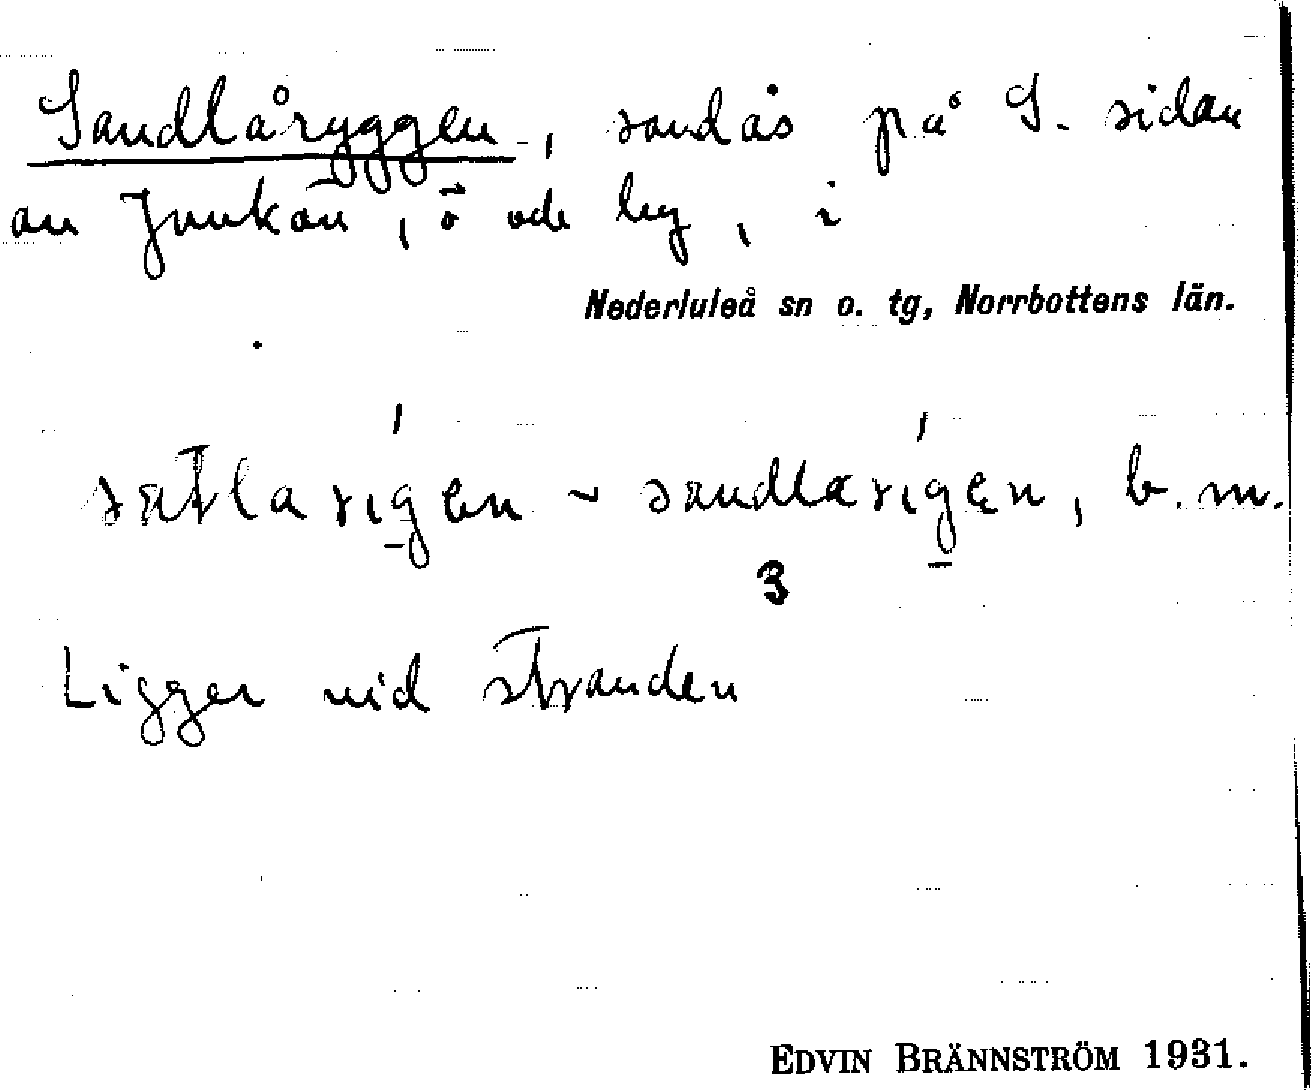 Sandlåryggen, sandås på S. sidan
av Junkön, ö och by, i
Nederluleå sn o. tg, Norrbottens län.
satlarigen ~ sandlarigen, b.m.
3
Ligger vid stranden
EDVIN BRÄNNSTRÖM 1931.